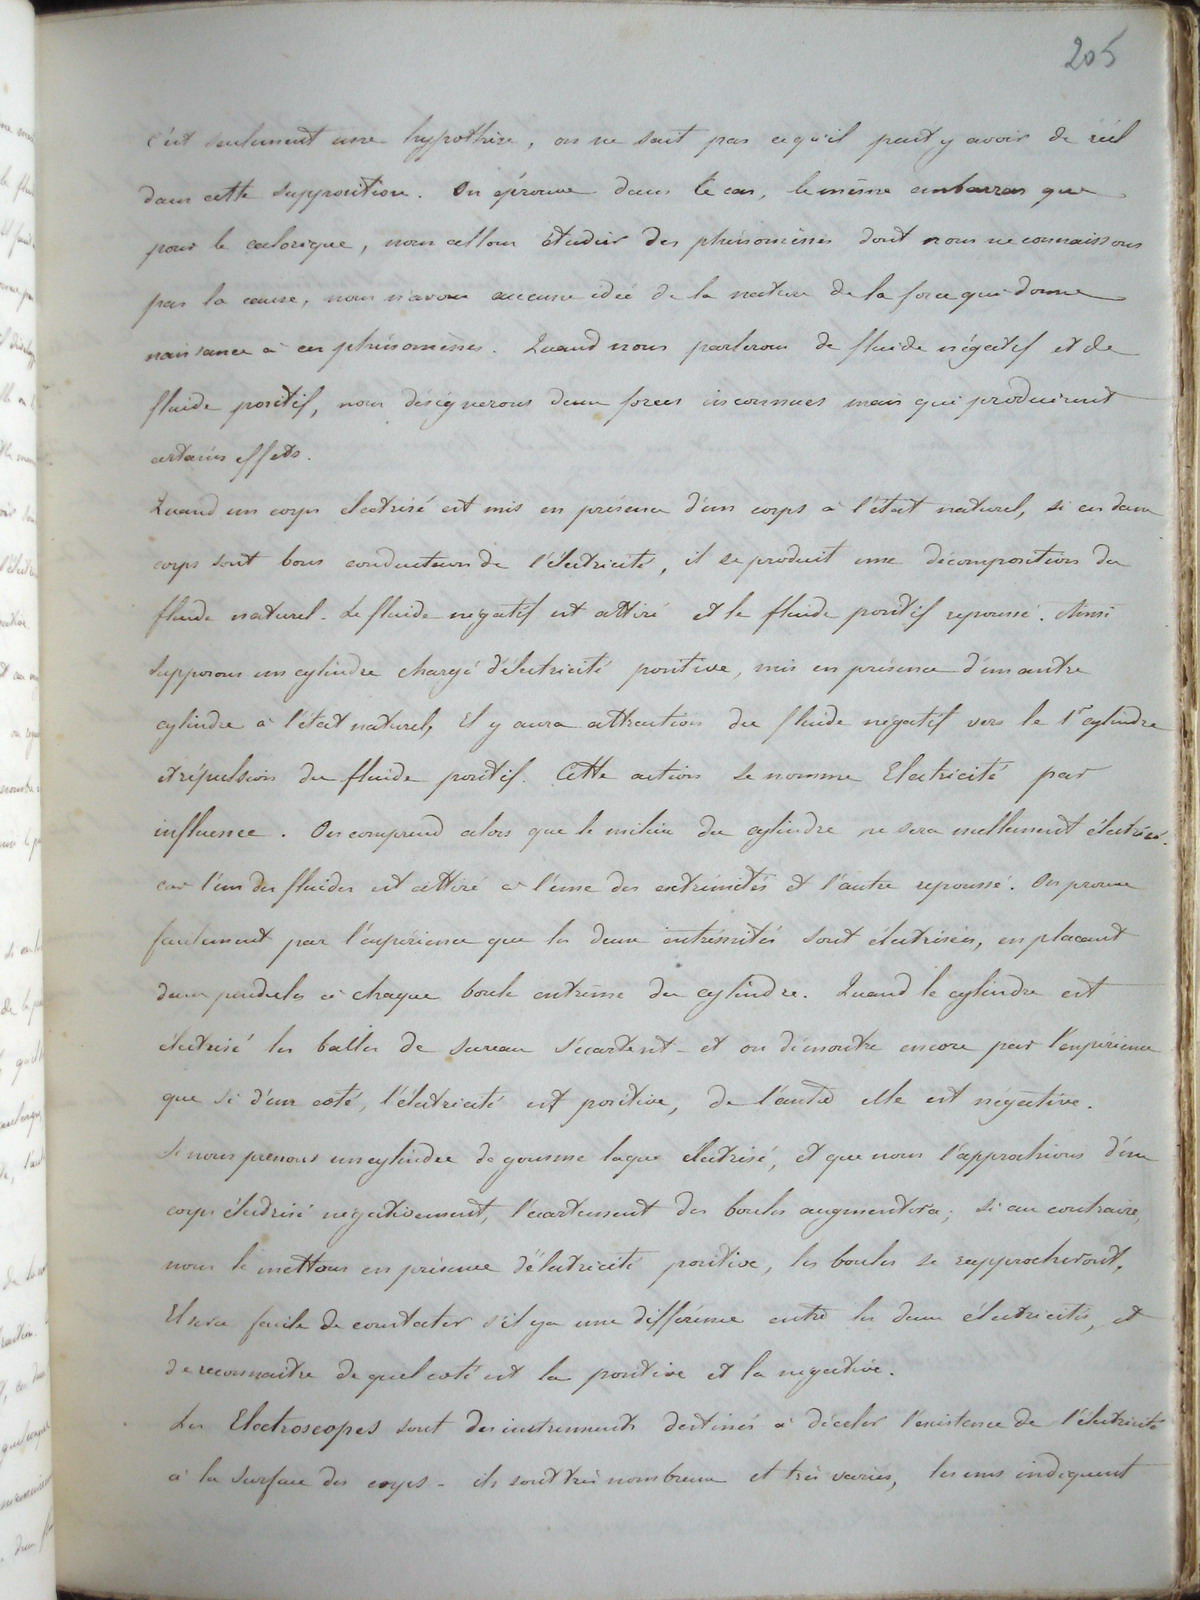 205
c'est seulement une hypothèse, on ne sait pas ce qu'il peut y avoir de réel
dans cette supposition. On éprouve dans ce cas, le même embarras que
pour le calorique, nous allons étudier des phénomènes dont nous ne connaissons
pas la cause, nous n'avons aucune idée de la nature de la force qui donne
naissance à ces phénomènes. Quand nous parlerons de fluide négatif et de
fluide positif, nous désignerons deux forces inconnues mais qui produiront
certains effets.
Quand un corps électrisé est mis en présence d'un corps à l'état naturel, si ces deux
corps sont bons conducteurs de l'électricité, il se produit une décomposition du
fluide naturel. Le fluide négatif est attiré et le fluide positif repoussé. Ainsi
supposons un cylindre chargé d'électricité positive, mis en présence d'un autre
cylindre à l'état naturel, il y aura attraction du fluide négatif vers le 1er cylindre
et répulsion du fluide positif. Cette action se nomme Electricité par
influence. On comprend alors que le milieu du cylindre ne sera nullement électrisé.
car l'un des fluides est attiré à l'une des extrémités et l'autre repoussé. On prouve
facilement par l'expérience que les deux extrémités sont électrisées, en plaçant
deux pendules à chaque boule extrême du cylindre. Quand le cylindre est
électrisé les balles de sureau s'écartent - et on démontre encore par l'expérience
que si d'un coté, l'électricité est positive, de l'autre elle est négative.
Si nous prenons un cylindre de gomme laque électrisé, et que nous l'approchions d'un
corps électrisé négativement, l'écartement des boules augmentera; si au contraire,
nous le mettons en présence d'électricité positive, les boules se rapprocheront.
Il sera facile de constater s'il y a une différence entre les deux électricités, et
de reconnaitre de quel coté est la positive et la négative.
Les Electroscopes sont des instruments destinés à déceler l'existence de l'électricité
à la surface des corps - ils sont très nombreux et très variés, les uns indiquent